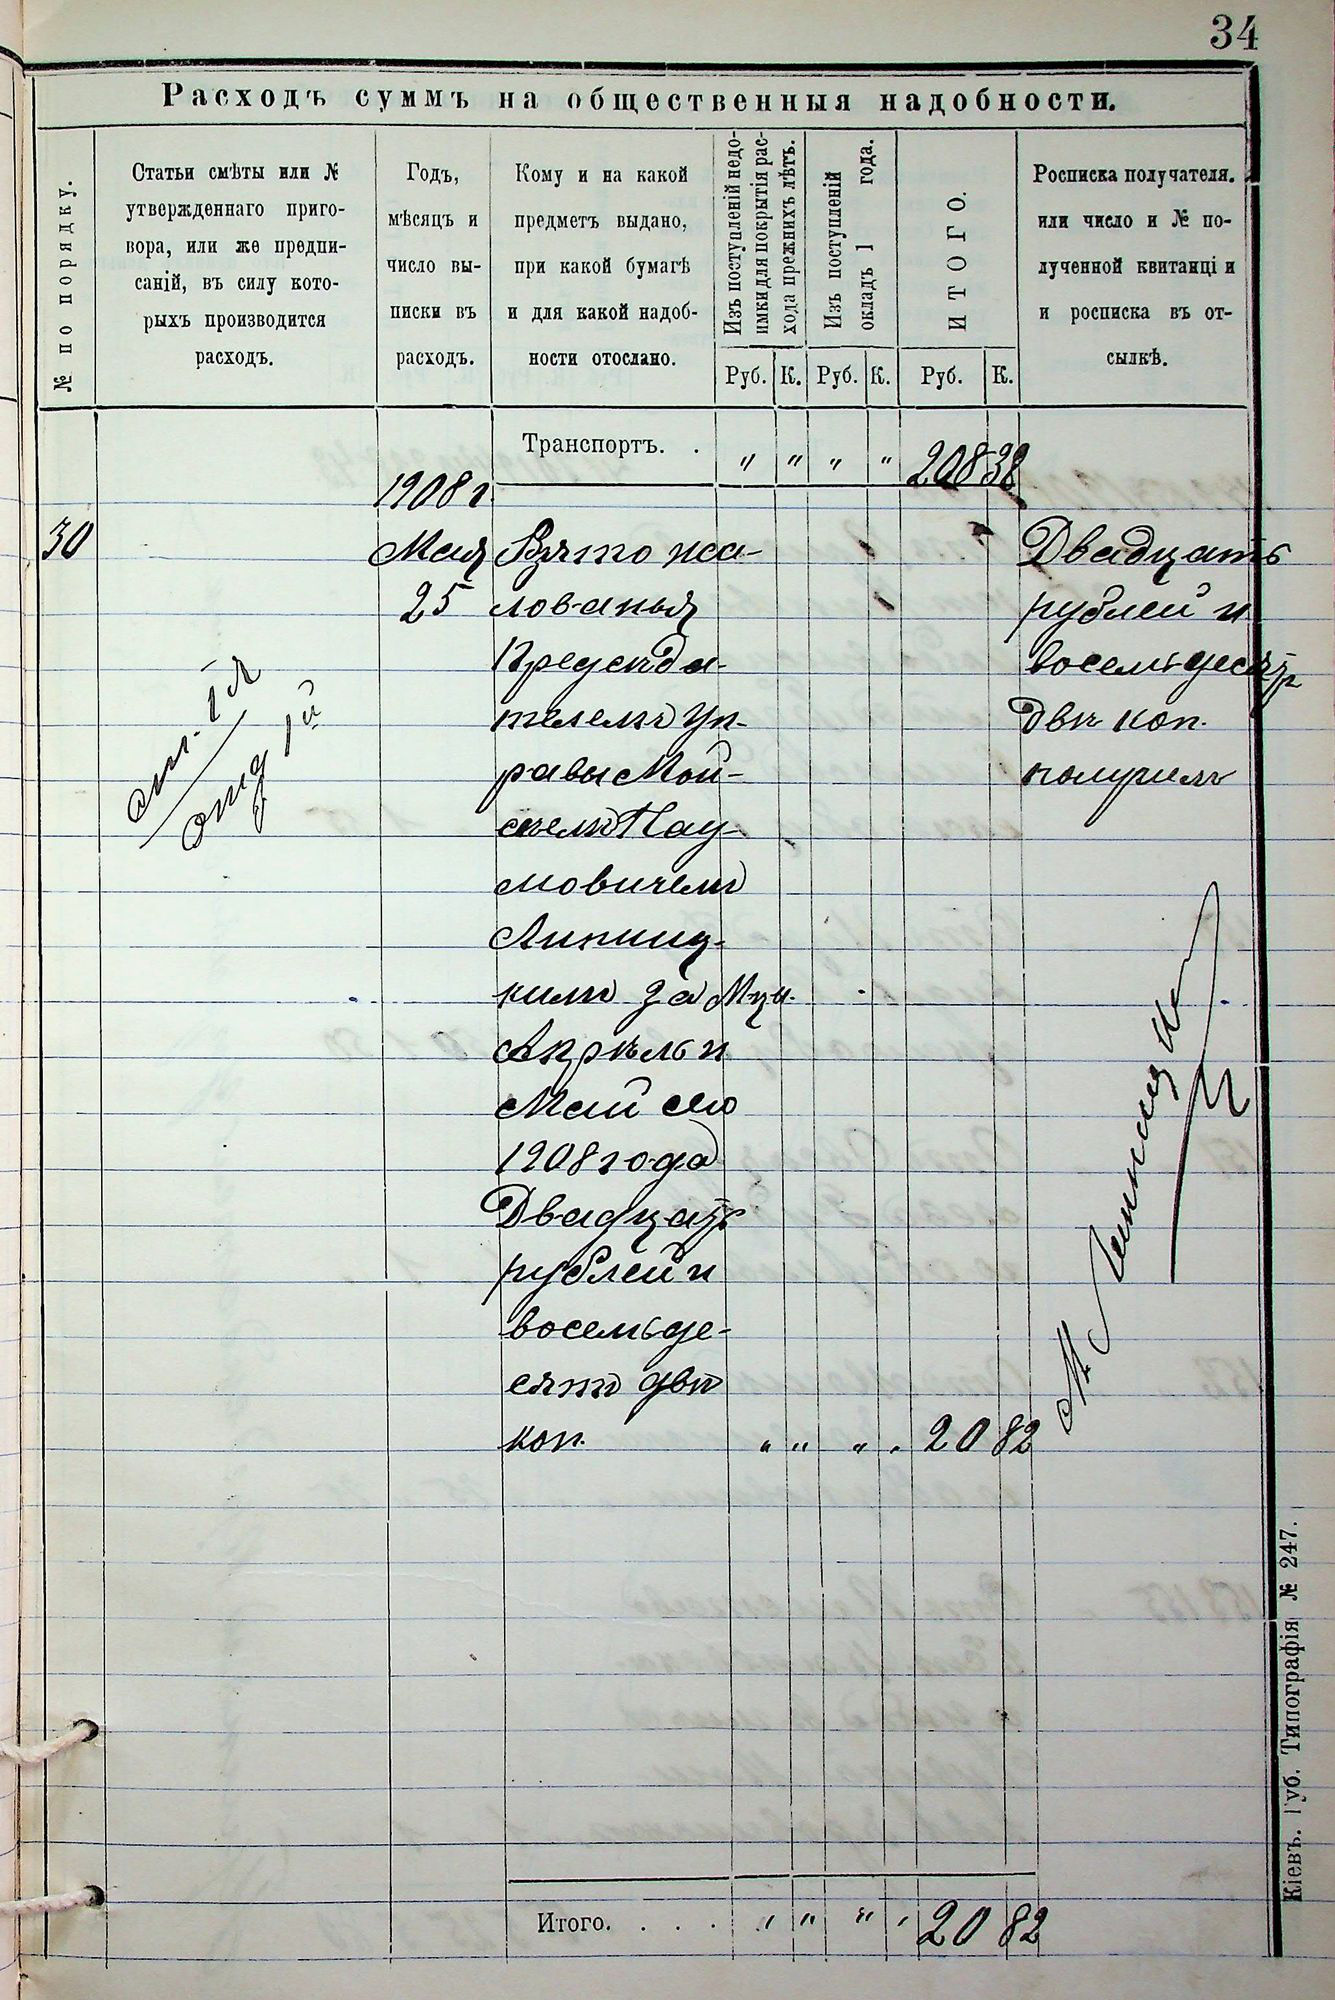 34
Расходъ суммъ на общественныя надобности.
№ по порядку.
Статьи смѣты или №
утвержденнаго приго-
вора, или же предпи-
саній, въ силу кото-
рыхъ производится
расходъ.
Годъ,
мѣсяцъ и
число вы-
писки въ
расходъ.
Кому и на какой
предметъ выдано,
при какой бумагѣ
и для какой надоб-
ности отослано.
Изъ поступленій недо-
имки для покрытія рас-
хода прежнихъ лѣтъ.
Изъ поступленій
окладъ 1 года.
ИТОГО.
Росписка получателя.
или число и № по-
лученной квитанціи
и росписка въ от-
сылкѣ.
Руб. К. Руб. К. Руб. К.
Транспортъ. . " " " " 208 38
1908 г.
30
ст. 1я
отд 1й
Мая
25
Взято жа-
лованья
Предсѣда-
телемъ Уп-
равы Мой-
сѣемъ Нау-
мовичемъ
Липниц-
кимъ за М-цы.
Апрѣль и
Май сего
1908 года
Двадцать
рублей и
восемьде-
сятъ двѣ
коп. " " " " 20 82
Двадцать
рублей и
восемьдесятъ
двѣ коп.
получилъ
М. Липницкій
Итого. . . . " " " " 20 82
Кіевъ. Губ. Типографія № 247.